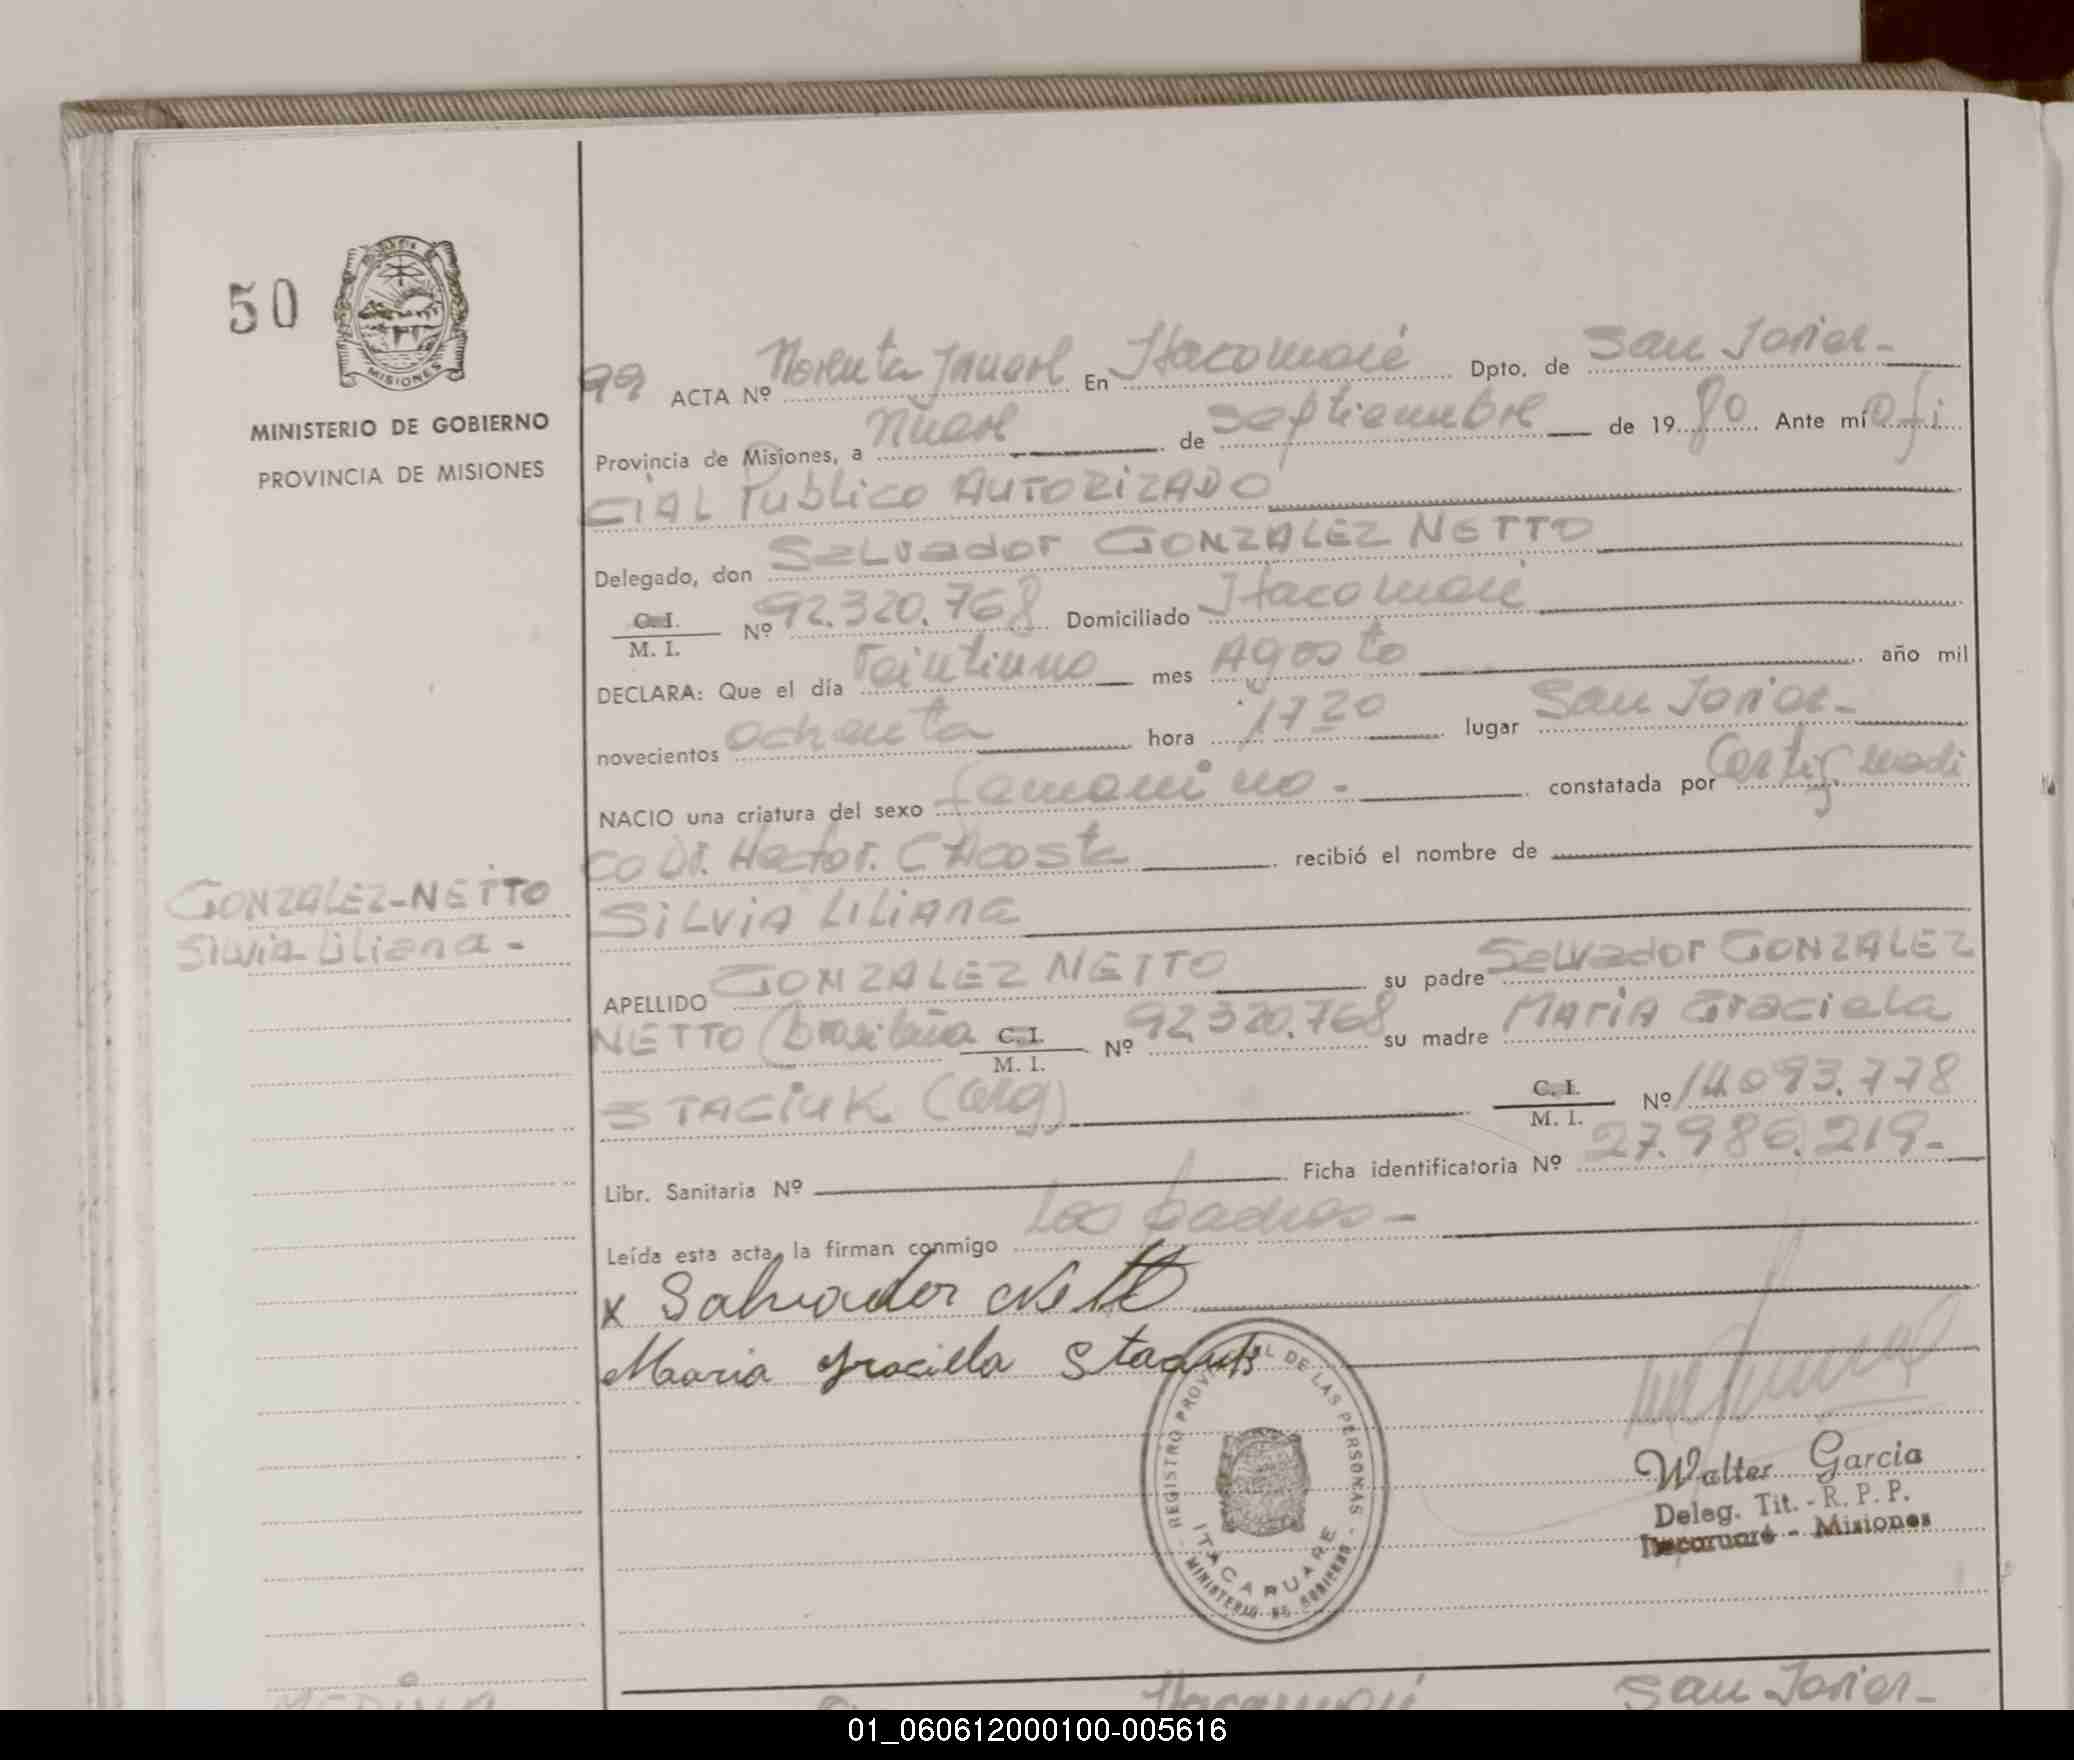 50
MISIONES
MINISTERIO DE GOBIERNO
PROVINCIA DE MISIONES
99 ACTA Nº Noventa y nueve En Itacaruaré Dpto. de San Javier-
Provincia de Misiones, a Nueve de Septiembre de 1980 Ante mí Ofi
CIAL Publico AUTORIZADO
Delegado, don Salvador GONZALEZ NETTO
C.I. / M. I. Nº 92.320.768 Domiciliado Itacaruaré
DECLARA: Que el día Veintiuno mes Agosto año mil
novecientos ochenta hora 17 20 lugar San Javier-
NACIO una criatura del sexo femenino - constatada por Certif. medi
co Dr. Hector. C Acosta recibió el nombre de
GONZALEZ-NETTO
Silvia Liliana -
SILVIA LILIANA
APELLIDO GONZALEZ NETTO su padre Salvador GONZALEZ
NETTO (brasileña C.I. / M. I. Nº 92.320.768 su madre MARIA Graciela
STACIUK (arg) C.I. / M. I. Nº 14.093.778
Libr. Sanitaria Nº Ficha identificatoria Nº 27.986.219-
Leída esta acta, la firman conmigo Los padres -
x Salvador Netto
Maria Graciela Staciuk
REGISTRO PROVINCIAL DE LAS PERSONAS
ITACARUARE
MINISTERIO DE GOBIERNO
Walter Garcia
Deleg. Tit. - R. P. P.
Itacaruaré - Misiones
MEDINA Itacaruaré San Javier-
01_060612000100-005616